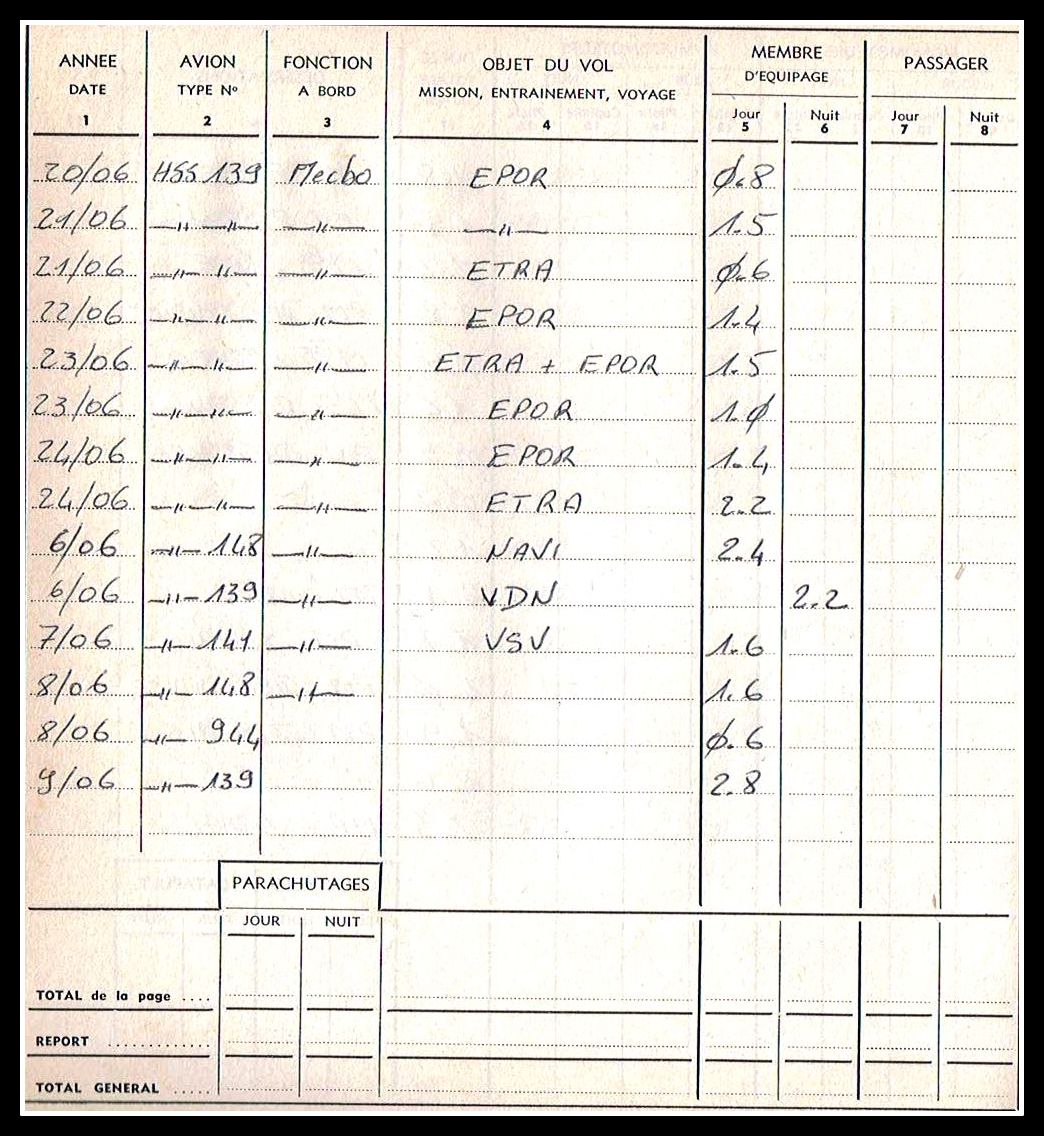 ANNEE AVION FONCTION OBJET DU VOL MEMBRE PASSAGER
DATE TYPE N° A BORD MISSION, ENTRAINEMENT, VOYAGE D'EQUIPAGE
1 2 3 4 Jour 5 Nuit 6 Jour 7 Nuit 8
20/06 HSS 139 Mecbo EPOR Ø.8
21/06 —〃— —〃— —〃— —〃— 1.5
21/06 —〃— 〃— —〃— ETRA Ø.6
22/06 —〃— 〃— —〃— EPOR 1.4
23/06 —〃— 〃— —〃— ETRA + EPOR 1.5
23/06 —〃— 〃— —〃— EPOR 1.Ø
24/06 —〃— 〃— —〃— EPOR 1.4
24/06 —〃— 〃— —〃— ETRA 2.2
6/06 —〃— 148 —〃— NAVI 2.4
6/06 —〃— 139 —〃— VDN 2.2
7/06 —〃— 141 —〃— VSV 1.6
8/06 —〃— 148 —〃— 1.6
8/06 —〃— 944 Ø.6
9/06 —〃— 139 2.8
PARACHUTAGES
JOUR NUIT
TOTAL de la page ....
REPORT .............
TOTAL GENERAL .....